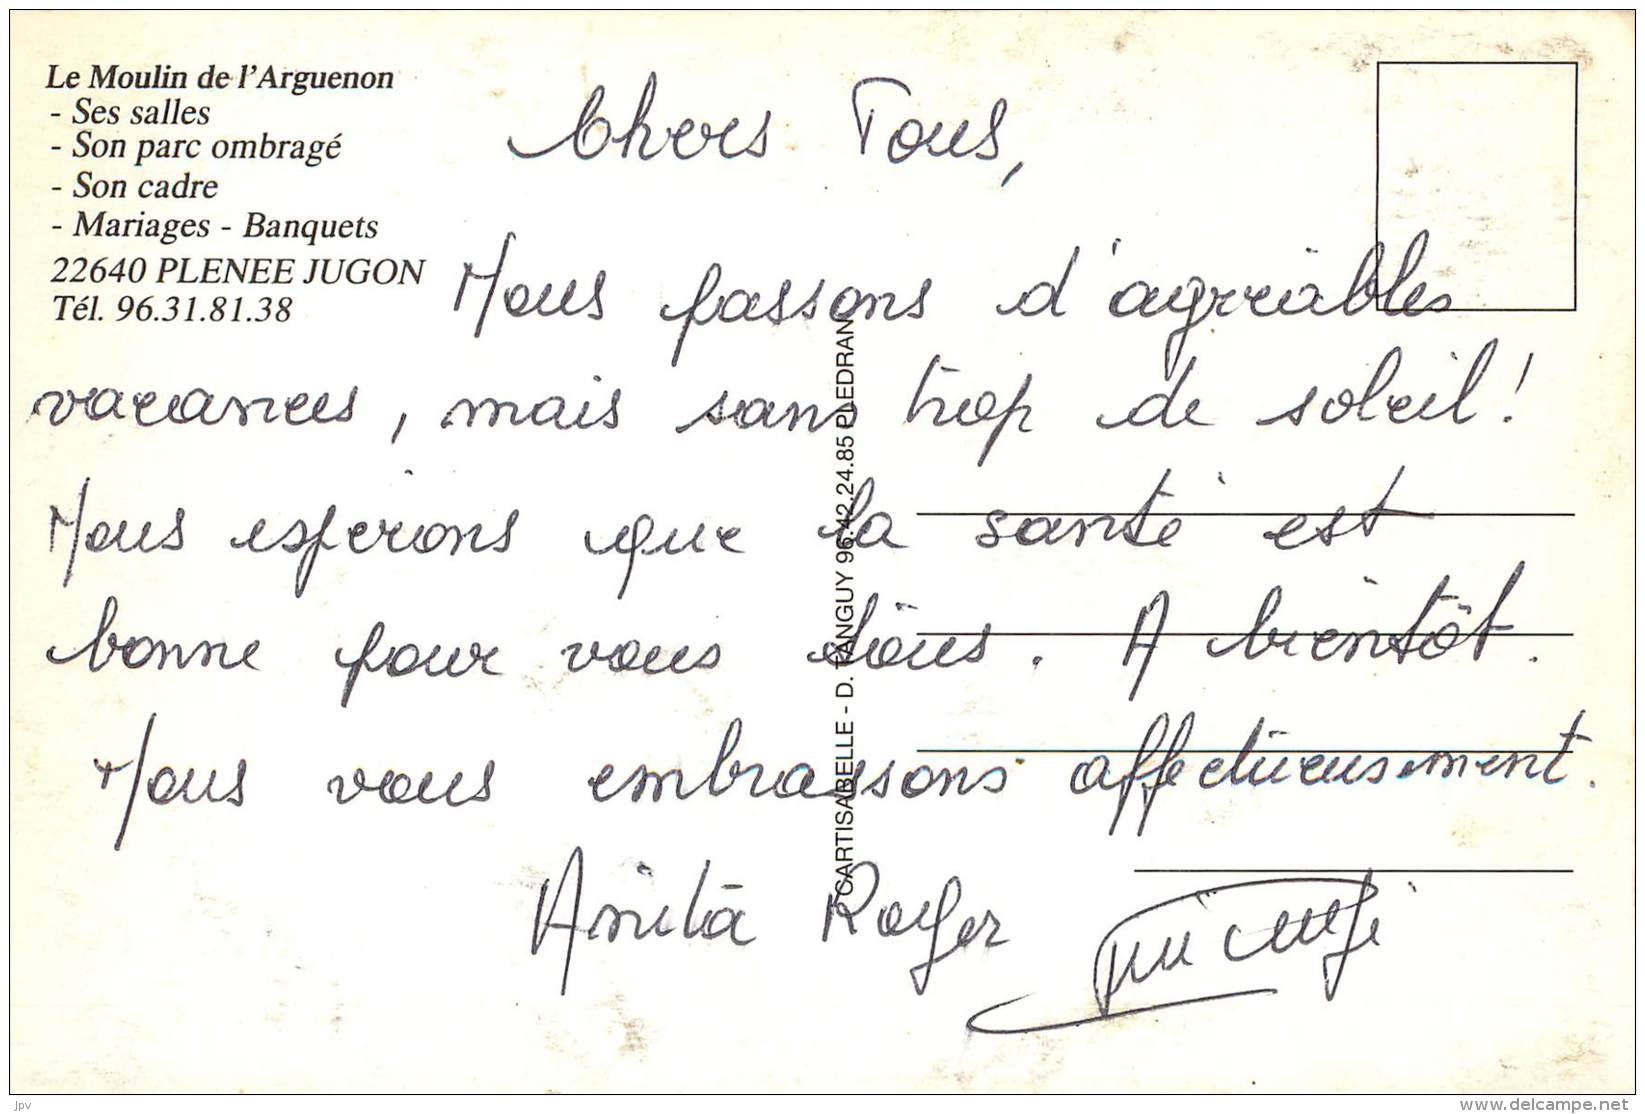 Le Moulin de l'Arguenon
- Ses salles
- Son parc ombragé
- Son cadre
- Mariages - Banquets
22640 PLENEE JUGON
Tél. 96.31.81.38
Chers Tous,
Nous passons d'agréables
vacances, mais sans trop de soleil!
Nous espérons que la santé est
bonne pour vous tous. A bientôt.
Nous vous embrassons affectueusement.
Anita Roger
CARTISABELLE - D. TANGUY 96.42.24.85 PLEDRAN
jpv
www.delcampe.net